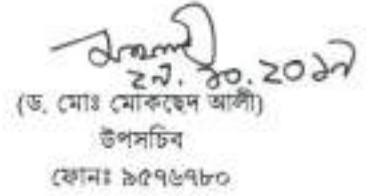 ২৭.১০.২০১৭
(ড. মোঃ মোকছেদ আলী)
উপসচিব
ফোনঃ ৯৫৭৬৭৮০